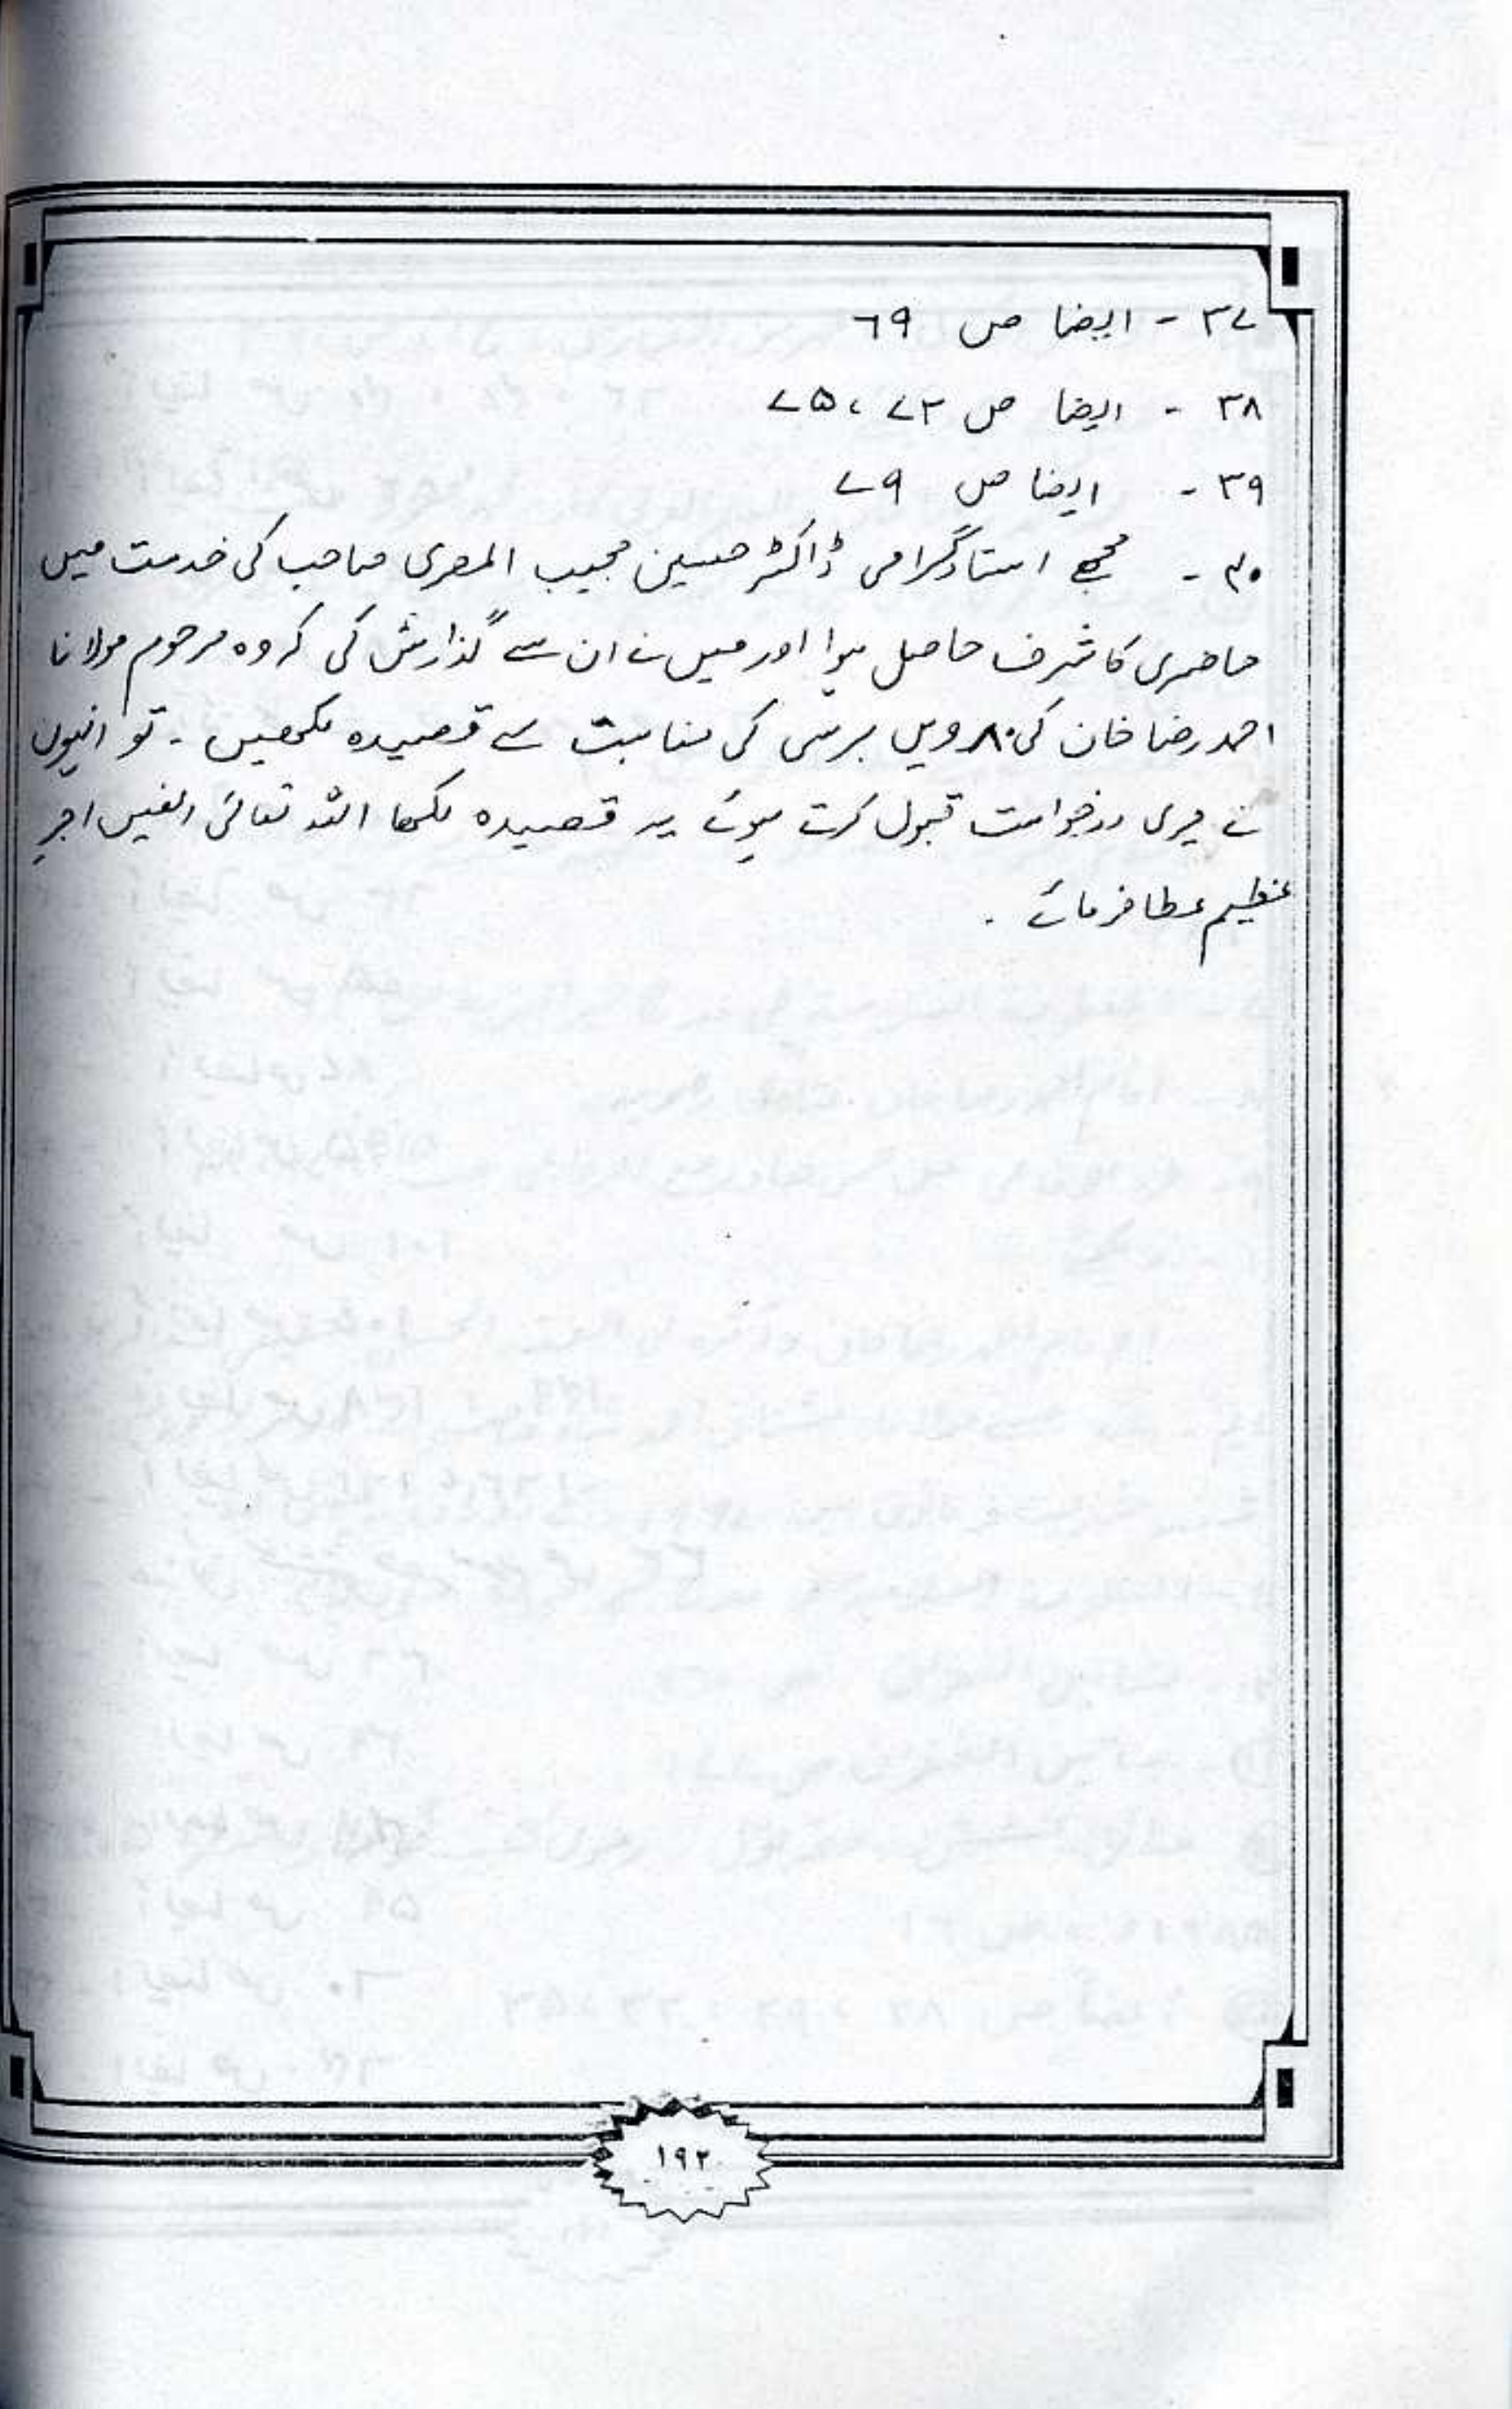 ۳۷ - ایضا ص ۶۹
۳۸ - ایضا ص ۷۳ ، ۷۵
۳۹ - ایضا ص ۷۹
۴۰ - مجھے استاد گرامی ڈاکٹر حسین مجیب المصری صاحب کی خدمت میں
حاضری کا شرف حاصل ہوا اور میں نے ان سے گذارش کی کہ وہ مرحوم مولانا
احمد رضا خان کی ۸۰ ویں برسی کی مناسبت سے قصیدہ لکھیں - تو انہوں
نے میری درخواست قبول کرتے ہوئے یہ قصیدہ لکھا اللہ تعالیٰ انھیں اجرِ
عظیم عطا فرمائے .
۱۹۲